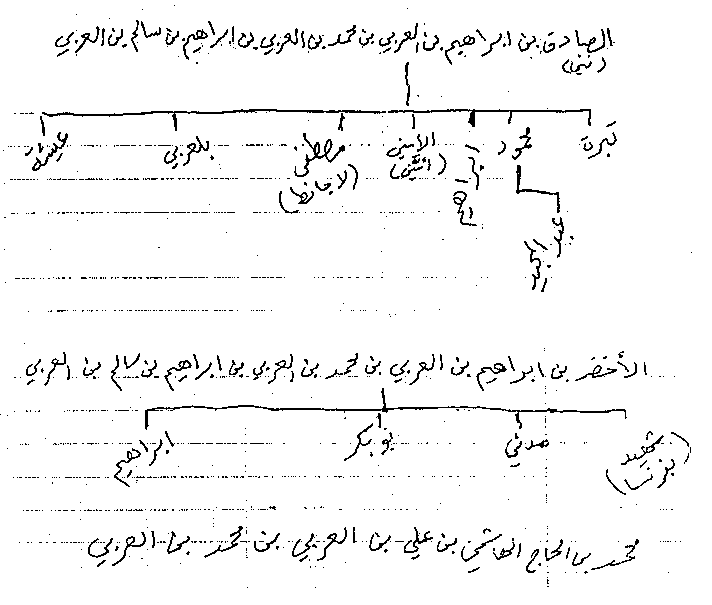 الصادق بن ابراهيم بن العربي بن محمد بن العربي بن ابراهيم بن سالم بن العربي
كبرة محمود ابراهيم الأمين مصطفى بلعربي عيشة
عبد المجيد
الأخضر بن ابراهيم بن العربي بن محمد بن العربي بن ابراهيم بن سالم بن العربي
شهيد مدني بوبكر ابراهيم
(بفرنسا)
محمد بن الحاج الهاشمي بن علي بن العربي بن محمد بن العربي